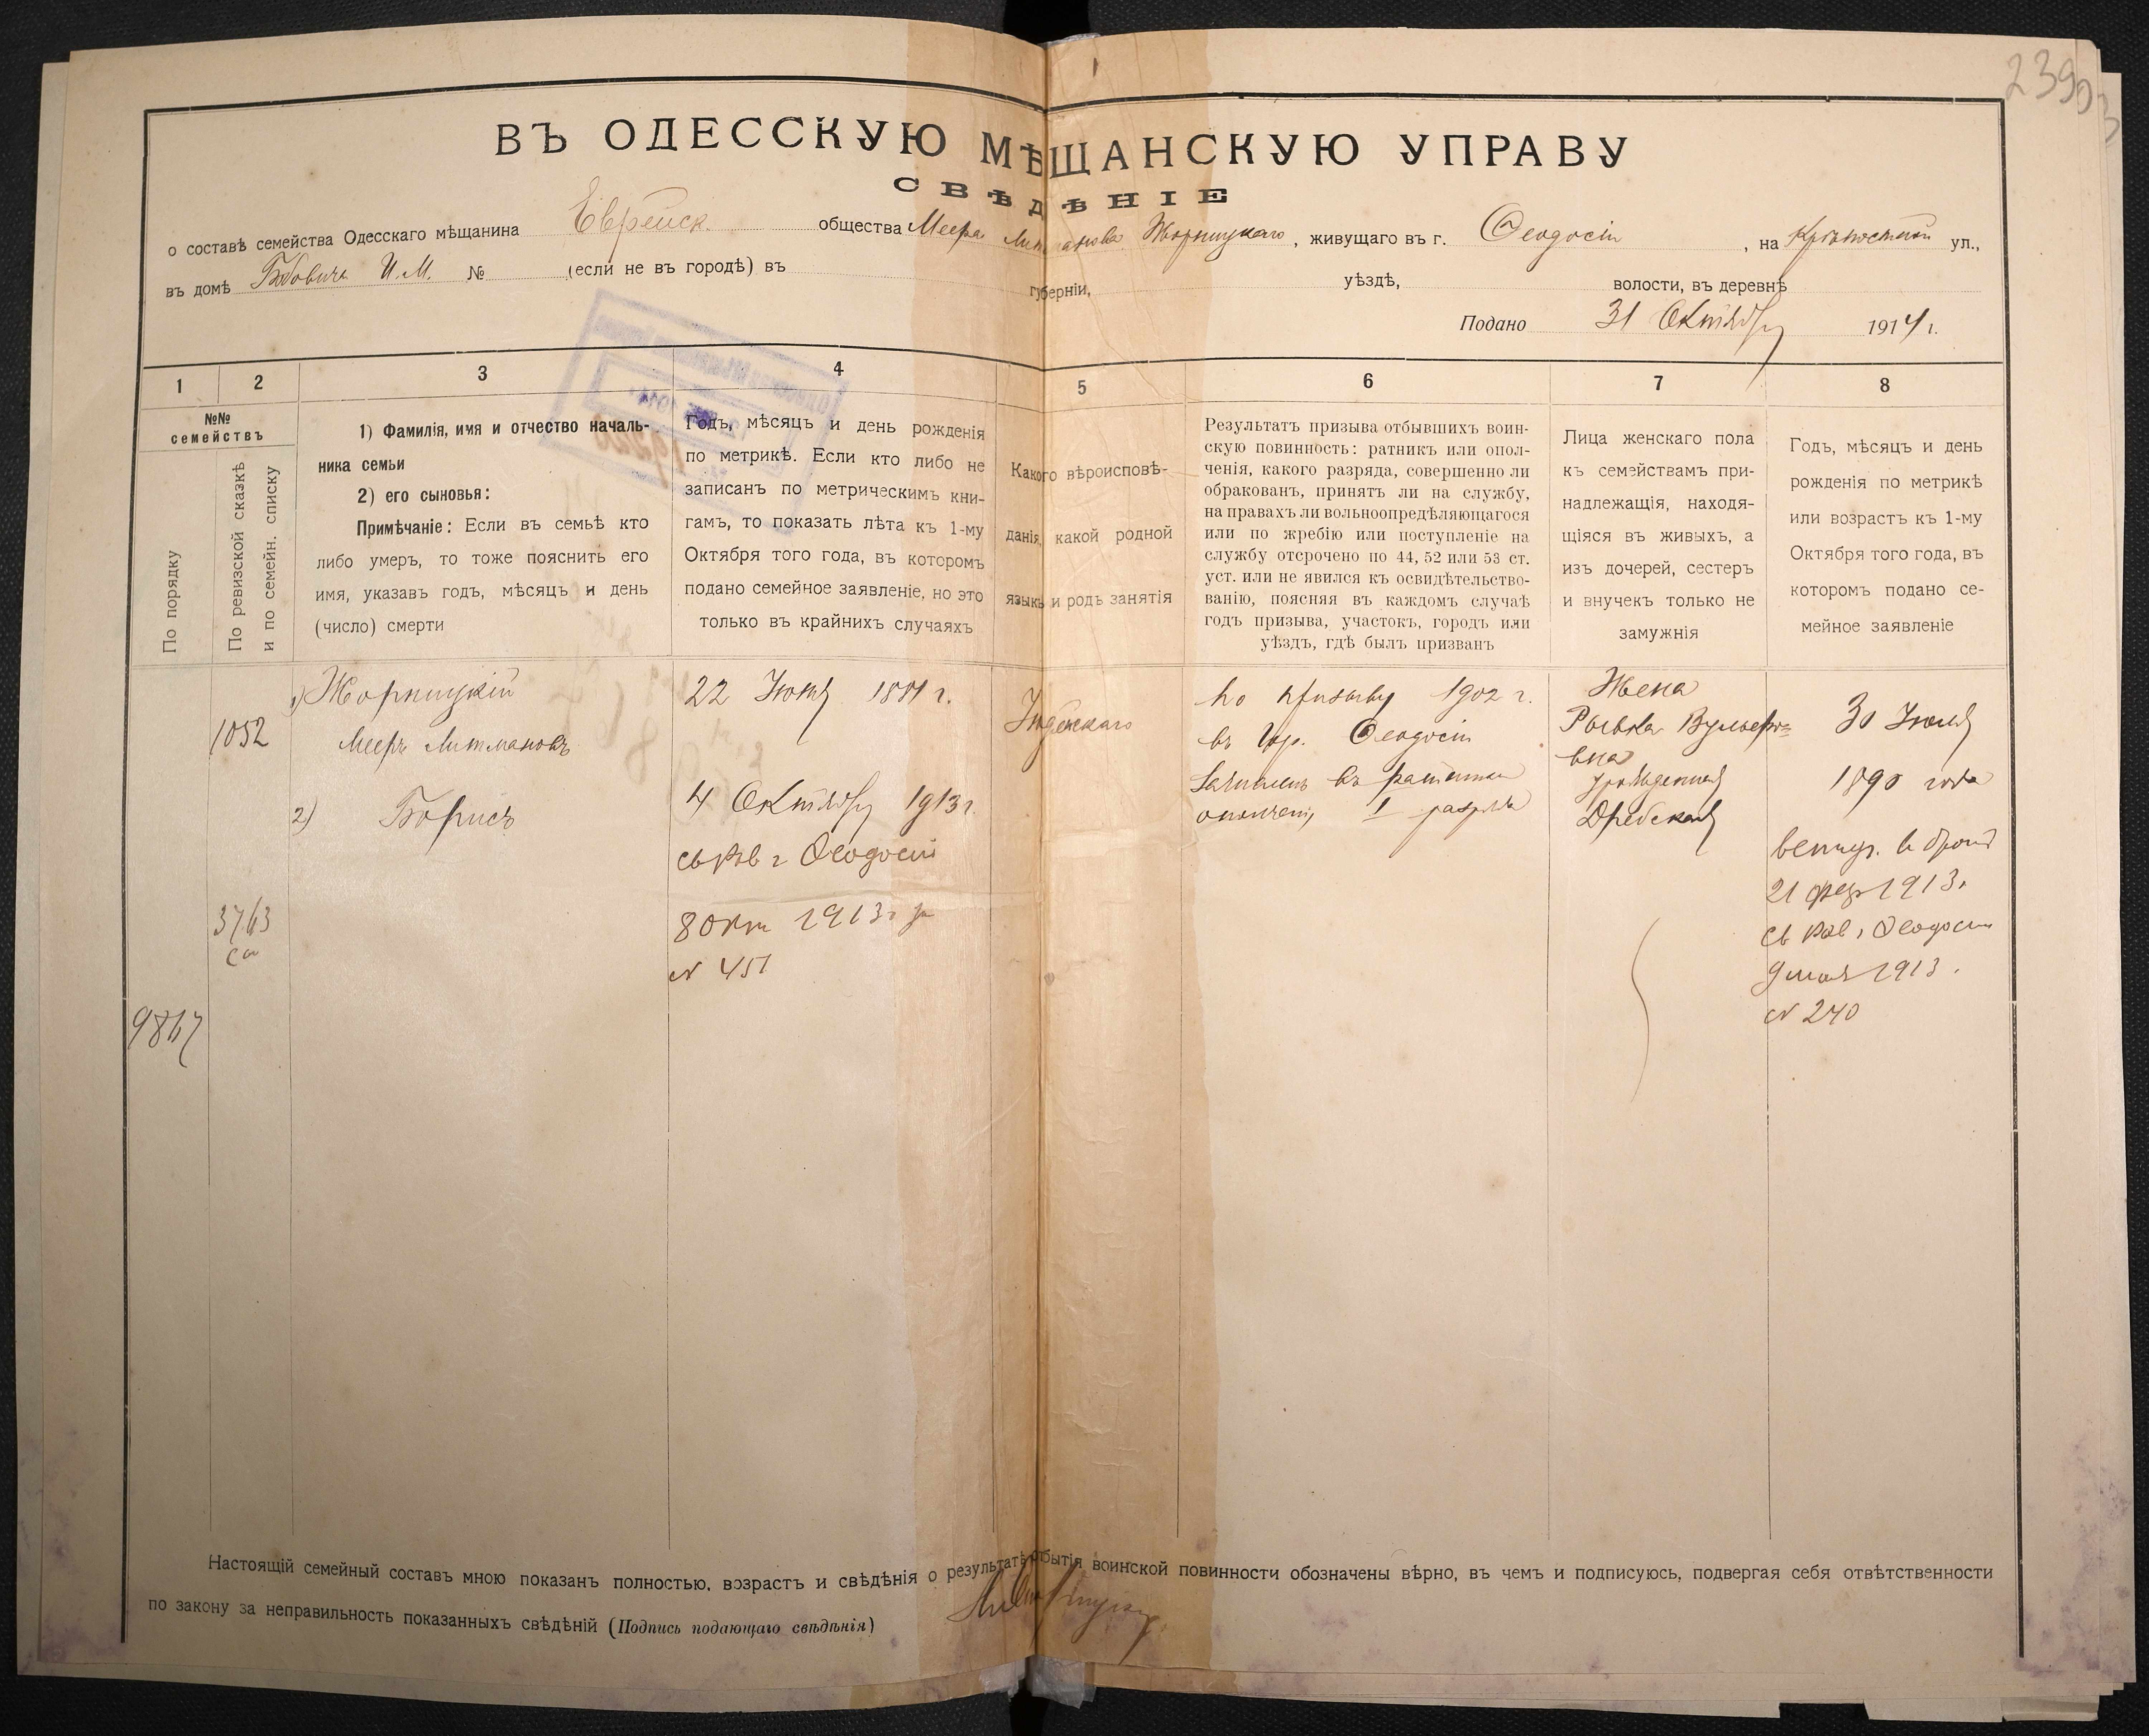 2390
ВЪ ОДЕССКУЮ МѢЩАНСКУЮ УПРАВУ
СВѢДѢНІЕ
о составѣ семейства Одесскаго мѣщанина Еврейск. общества Меера Литманова Жорницкаго, живущаго въ г. Ѳеодосіи, на Крѣпостной ул.,
въ домѣ Бобовича И.М. № (если не въ городѣ) въ губерніи, уѣздѣ, волости, въ деревнѣ
Подано 31 Октября 1914 г.
1 2 3 4 5 6 7 8
№№
семействъ
По порядку
По ревизской сказкѣ
и по семейн. списку
1) Фамилія, имя и отчество началь-
ника семьи
2) его сыновья:
Примѣчаніе: Если въ семьѣ кто
либо умеръ, то тоже пояснить его
имя, указавъ годъ, мѣсяцъ и день
(число) смерти
Годъ, мѣсяцъ и день рожденія
по метрикѣ. Если кто либо не
записанъ по метрическимъ кни-
гамъ, то показать лѣта къ 1-му
Октября того года, въ которомъ
подано семейное заявленіе, но это
только въ крайнихъ случаяхъ
Какого вѣроисповѣ-
данія, какой родной
языкъ и родъ занятія
Результатъ призыва отбывшихъ воин-
скую повинность: ратникъ или опол-
ченія, какого разряда, совершенно ли
обракованъ, принятъ ли на службу,
на правахъ ли вольноопредѣляющагося
или по жребію или поступленіе на
службу отсрочено по 44, 52 или 53 ст.
уст. или не явился къ освидѣтельство-
ванію, поясняя въ каждомъ случаѣ
годъ призыва, участокъ, городъ или
уѣздъ, гдѣ былъ призванъ
Лица женскаго пола
къ семействамъ при-
надлежащія, находя-
щіяся въ живыхъ, а
изъ дочерей, сестеръ
и внучекъ только не
замужнія
Годъ, мѣсяцъ и день
рожденія по метрикѣ
или возрастъ къ 1-му
Октября того года, въ
которомъ подано се-
мейное заявленіе
1052
3763
9867
1) Жорницкій
Мееръ Литмановъ
2) Борисъ
22 Іюня 1881 г.
4 Октября 1913 г.
св Рав г Ѳеодосіи
8 Окт 1913 г за
N 451
Іудейскаго
По призыву 1902 г.
въ гор. Ѳеодосіи
зачисленъ въ ратники
ополченія 1 разряда
Жена
Рывка Вульфо=
вна
урожденная
30 Іюля
1890 года
вступ. в бракъ
21 февр 1913.
св Рав г Ѳеодосіи
9 мая 1913.
N 240
Настоящій семейный составъ мною показанъ полностью, возрастъ и свѣдѣнія о результатѣ отбытія воинской повинности обозначены вѣрно, въ чемъ и подписуюсь, подвергая себя отвѣтственности
по закону за неправильность показанныхъ свѣдѣній (Подпись подающаго свѣдѣнія)